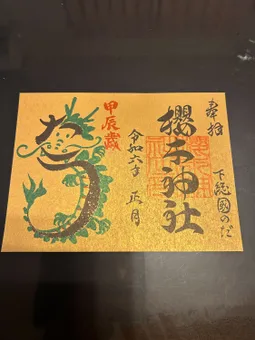 奉拝
下総國のだ
櫻木神社
令和六年 正月
甲辰歳